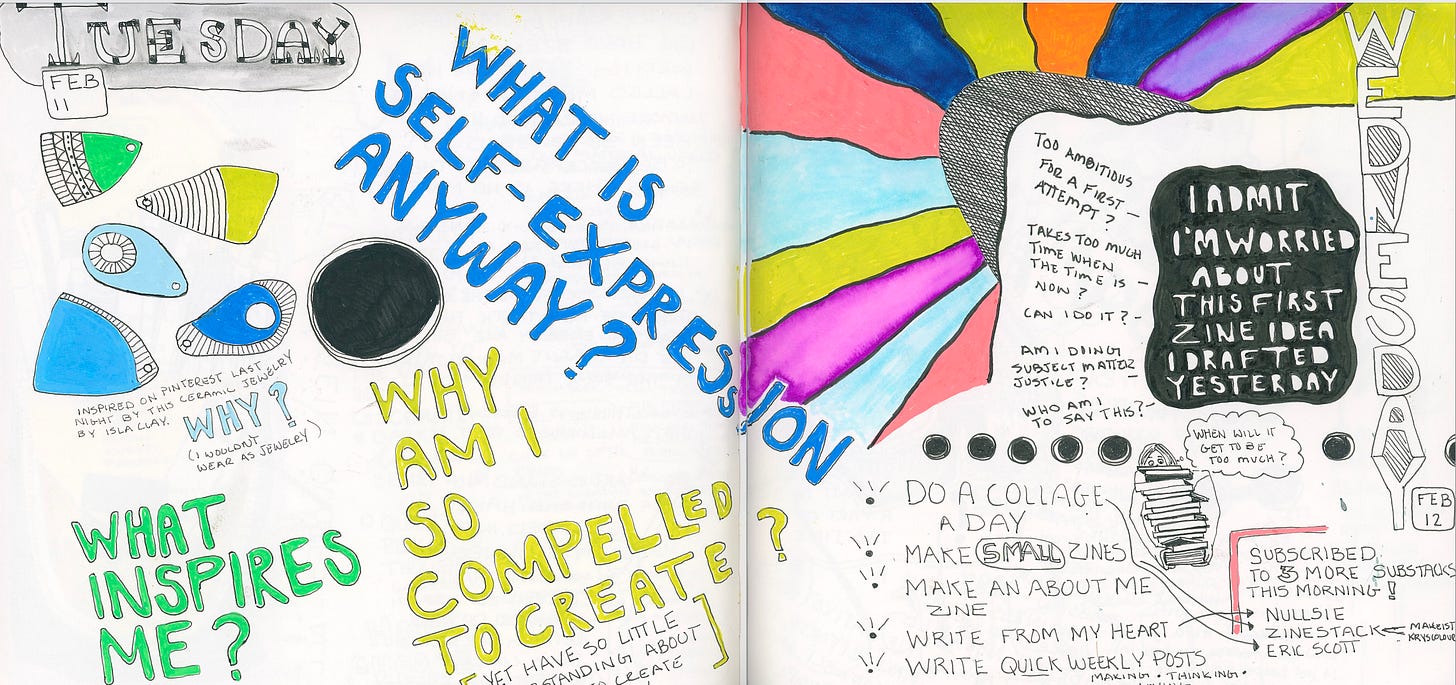 TUESDAY
FEB
11
WHAT IS
SELF-EXPRESSION
ANYWAY?
INSPIRED ON PINTEREST LAST
NIGHT BY THIS CERAMIC JEWELRY
BY ISLA CLAY.
WHY?
(I WOULDN'T
WEAR AS JEWELRY)
WHAT
INSPIRES
ME?
WHY
AM I
SO
COMPELLED
TO CREATE?
[YET HAVE SO LITTLE
STANDING ABOUT
TO CREATE]
WEDNESDAY
FEB
12
TOO AMBITIOUS
FOR A FIRST -
ATTEMPT?
TAKES TOO MUCH
TIME WHEN
THE TIME IS -
NOW?
CAN I DO IT? -
AM I DOING
SUBJECT MATTER
JUSTICE? -
WHO AM I
TO SAY THIS? -
I ADMIT
I'M WORRIED
ABOUT
THIS FIRST
ZINE IDEA
I DRAFTED
YESTERDAY
WHEN WILL IT
GET TO BE
TOO MUCH?
DO A COLLAGE
A DAY
MAKE SMALL ZINES
MAKE AN ABOUT ME
ZINE
WRITE FROM MY HEART
WRITE QUICK WEEKLY POSTS
MAKING • THINKING •
SUBSCRIBED
TO 3 MORE SUBSTACKS
THIS MORNING!
NULLSIE
ZINESTACK
ERIC SCOTT